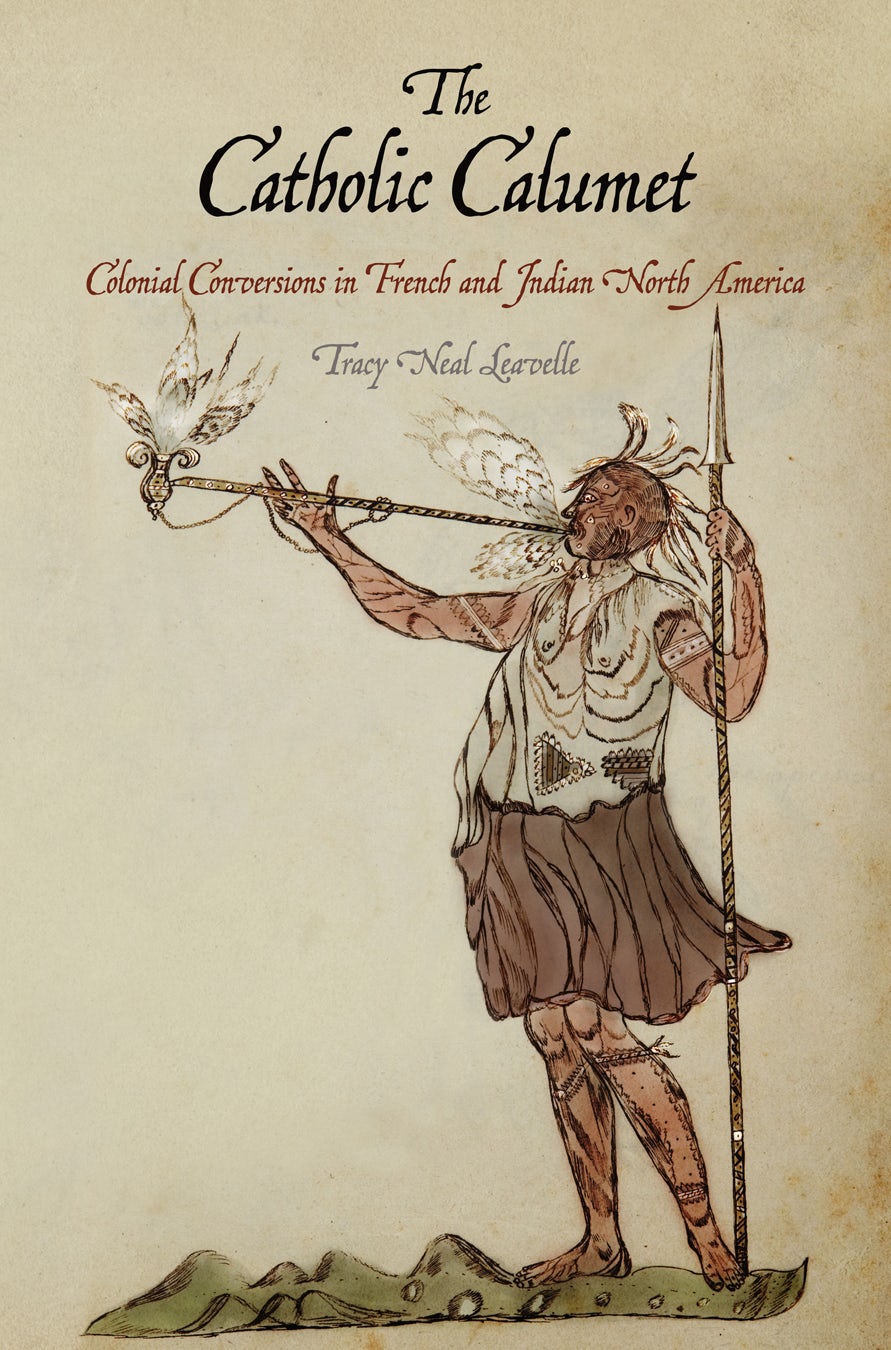 The
Catholic Calumet
Colonial Conversions in French and Indian North America
Tracy Neal Leavelle